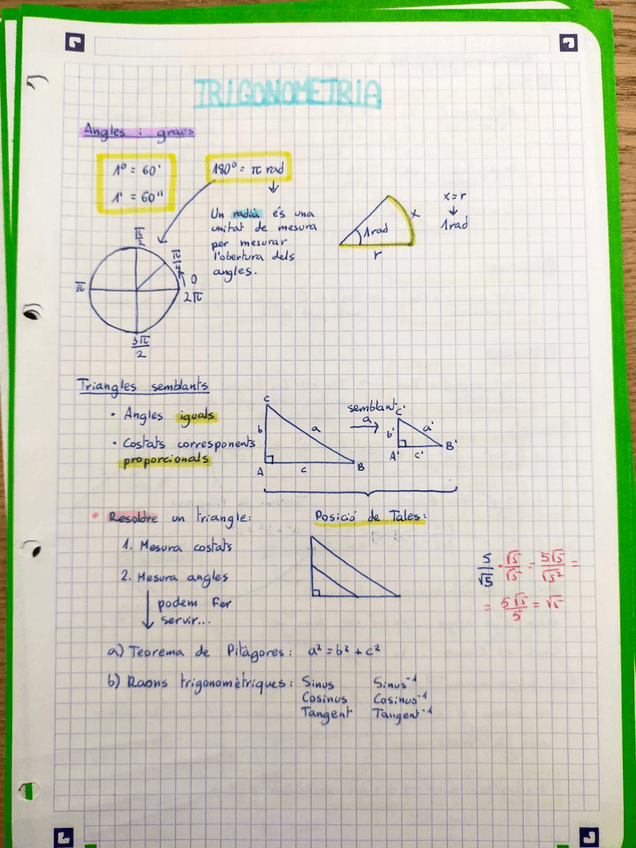 TRIGONOMETRIA
Angles i graus
1º = 60'
1' = 60''
180º = π rad
Un radià és una
unitat de mesura
per mesurar
l'obertura dels
angles.
1 rad
x
r
x = r
1 rad
π/2
π/4
π
0
2π
3π/2
Triangles semblants
• Angles iguals
• Costats corresponents
proporcionals
C
b
a
A
c
B
semblant
a
C'
b'
a'
A'
c'
B'
• Resoldre un triangle:
1. Mesura costats
2. Mesura angles
podem fer
servir...
Posició de Tales:
5/√5 · √5/√5 = 5√5/√5² =
= 5√5/5 = √5
a) Teorema de Pitàgores: a² = b² + c²
b) Raons trigonomètriques: Sinus Sinus⁻¹
Cosinus Cosinus⁻¹
Tangent Tangent⁻¹